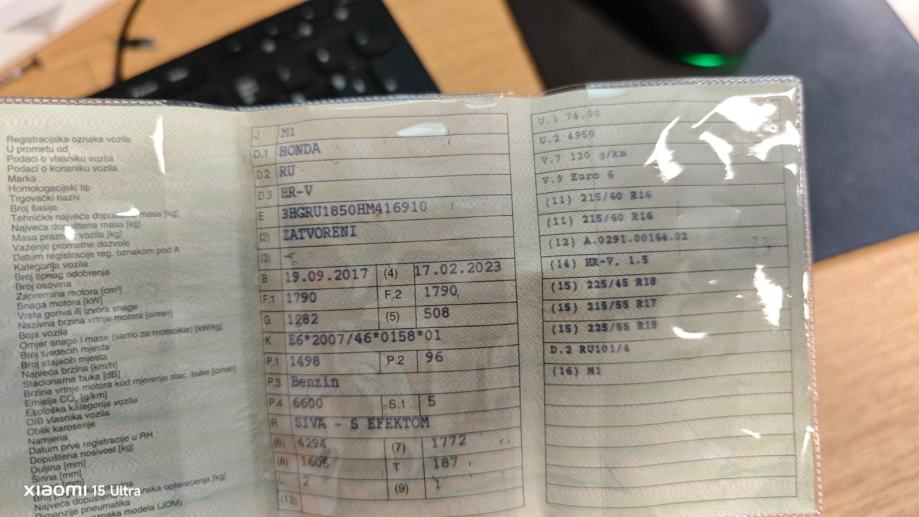 Registracijska oznaka vozila
U prometu od
Podaci o vlasniku vozila
Podaci o korisniku vozila
Marka
Homologacijski tip
Trgovački naziv
Broj šasije
Tehnička najveća dopuštena masa [kg]
Najveća dopuštena masa [kg]
Masa praznog vozila [kg]
Važenje prometne dozvole
Datum registracije reg. oznakom pod A
Kategorija vozila
Broj tipnog odobrenja
Broj osovina
Zapremina motora [cm³]
Snaga motora [kW]
Vrsta goriva ili izvora snage
Nazivna brzina vrtnje motora [o/min]
Boja vozila
Omjer snage i mase (samo za motocikle) [kW/kg]
Broj sjedećih mjesta
Broj stajaćih mjesta
Najveća brzina [km/h]
Stacionarna buka [dB]
Brzina vrtnje motora kod mjerenja stac. buke [o/min]
Emisija CO₂ [g/km]
Ekološka kategorija vozila
OIB vlasnika vozila
Oblik karoserije
Namjena
Datum prve registracije u RH
Dopuštena nosivost [kg]
Duljina [mm]
Širina [mm]
Najveća
Dimenzije pneumatika
oznaka modela (JOM)
J M1
D.1 HONDA
D.2 RU
D.3 HR-V
E 3HGRU1850HM416910
(2) ZATVORENI
(3) -
B 19.09.2017 (4) 17.02.2023
F.1 1790 F.2 1790
G 1282 (5) 508
K E6*2007/46*0158*01
P.1 1498 P.2 96
P.3 Benzin
P.4 6600 S.1 5
R SIVA - S EFEKTOM
(6) 4294 (7) 1772
(8) 1605 T 187
L 2 (9) 1
(13)
U.1 76.00
U.2 4950
V.7 120 g/km
V.9 Euro 6
(11) 215/60 R16
(11) 215/60 R16
(12) A.0291.00164.02
(14) HR-V. 1.5
(15) 225/45 R18
(15) 215/55 R17
(15) 225/55 R18
D.2 RU101/4
(16) M1
xiaomi 15 Ultra